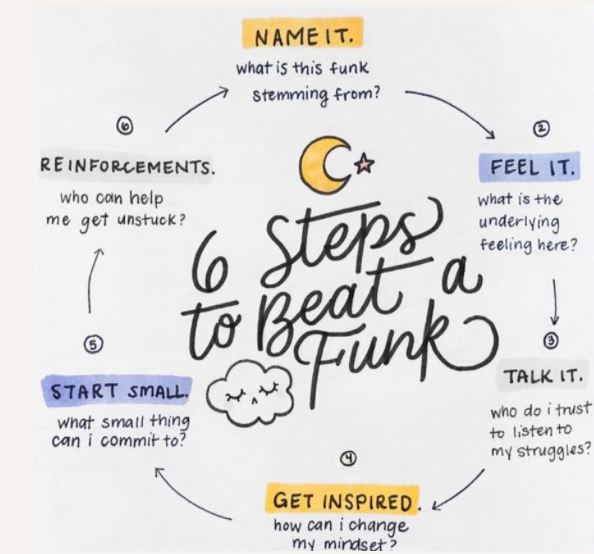 NAME IT.
what is this funk
stemming from?
②
FEEL IT.
what is the
underlying
feeling here?
③
TALK IT.
who do i trust
to listen to
my struggles?
④
GET INSPIRED.
how can i change
my mindset?
⑤
START SMALL.
what small thing
can i commit to?
⑥
REINFORCEMENTS.
who can help
me get unstuck?
6 Steps
to Beat a
Funk